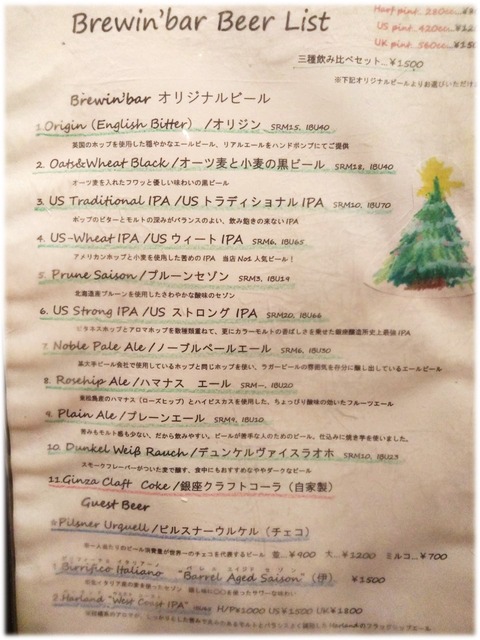 Brewin'bar Beer List
US pint 420cc
UK pint 560cc
三種飲み比べセット…¥1500
※下記オリジナルビールよりお選びいただけ
Brewin'bar オリジナルビール
1.Origin (English Bitter) /オリジン SRM15, IBU40
英国のホップを使用した穏やかなエールビール、リアルエールをハンドポンプにてご提供
2. Oats&Wheat Black /オーツ麦と小麦の黒ビール SRM18, IBU40
オーツ麦を入れたフワッと優しい味わいの黒ビール
3. US Traditional IPA /US トラディショナル IPA SRM10, IBU70
ホップのビターとモルトの深みがバランスのよい、飲み飽きの来ない IPA
4. US-Wheat IPA /US ウィート IPA SRM6, IBU65
アメリカンホップと小麦を使用した苦めの IPA 当店 No1 人気ビール！
5. Prune Saison /プルーンセゾン SRM3, IBU19
北海道産プルーンを使用したさわやかな酸味のセゾン
6. US Strong IPA /US ストロング IPA SRM20, IBU66
ビタネスホップとアロマホップを数種類重ねて、更にカラーモルトの香ばしさを乗せた銀座醸造所史上最強 IPA
7. Noble Pale Ale /ノーブルペールエール SRM6, IBU30
某大手ビール会社で使用しているホップと同じホップを使い、ラガービールの雰囲気を存分に醸し出しているエールビール
8. Rosehip Ale /ハマナス エール SRM―, IBU20
産のハマナス（ローズヒップ）とハイビスカスを使用した、ちょっぴり酸味の効いたフルーツエール
9. Plain Ale /プレーンエール SRM4, IBU10
苦みもモルト感も少ない、だから飲みやすい。ビールが苦手な人のためのビール。仕込みに焼き芋を使いました。
10. Dunkel Weiß Rauch /デュンケルヴァイスラオホ SRM10, IBU23
スモークフレーバーがついた麦で醸す、食中にもおすすめなややダークなビール
11.Ginza Claft Coke /銀座クラフトコーラ（自家製）
Guest Beer
Pilsner Urquell /ピルスナーウルケル（チェコ）
※一人当たりのビール消費量が世界一のチェコを代表するビール ¥900 大…¥1200 ミルコ…¥700
Birrifico Italiano "Barrel Aged Saison"（伊） ¥1500
Harland "West Coast IPA" H/P¥1000 US¥1500 UK¥1800